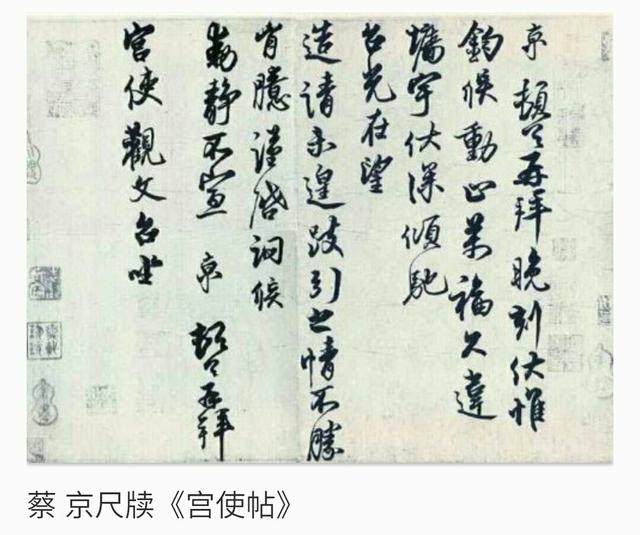 京 頓首再拜晚刻伏惟
鈞候動止萬福久違
墻宇伏深傾馳
台光在望
造請未遑跂引之情不勝
胸臆謹啓詗候
動靜不宣 京 頓首再拜
宮使觀文台坐
蔡 京尺牍《宫使帖》